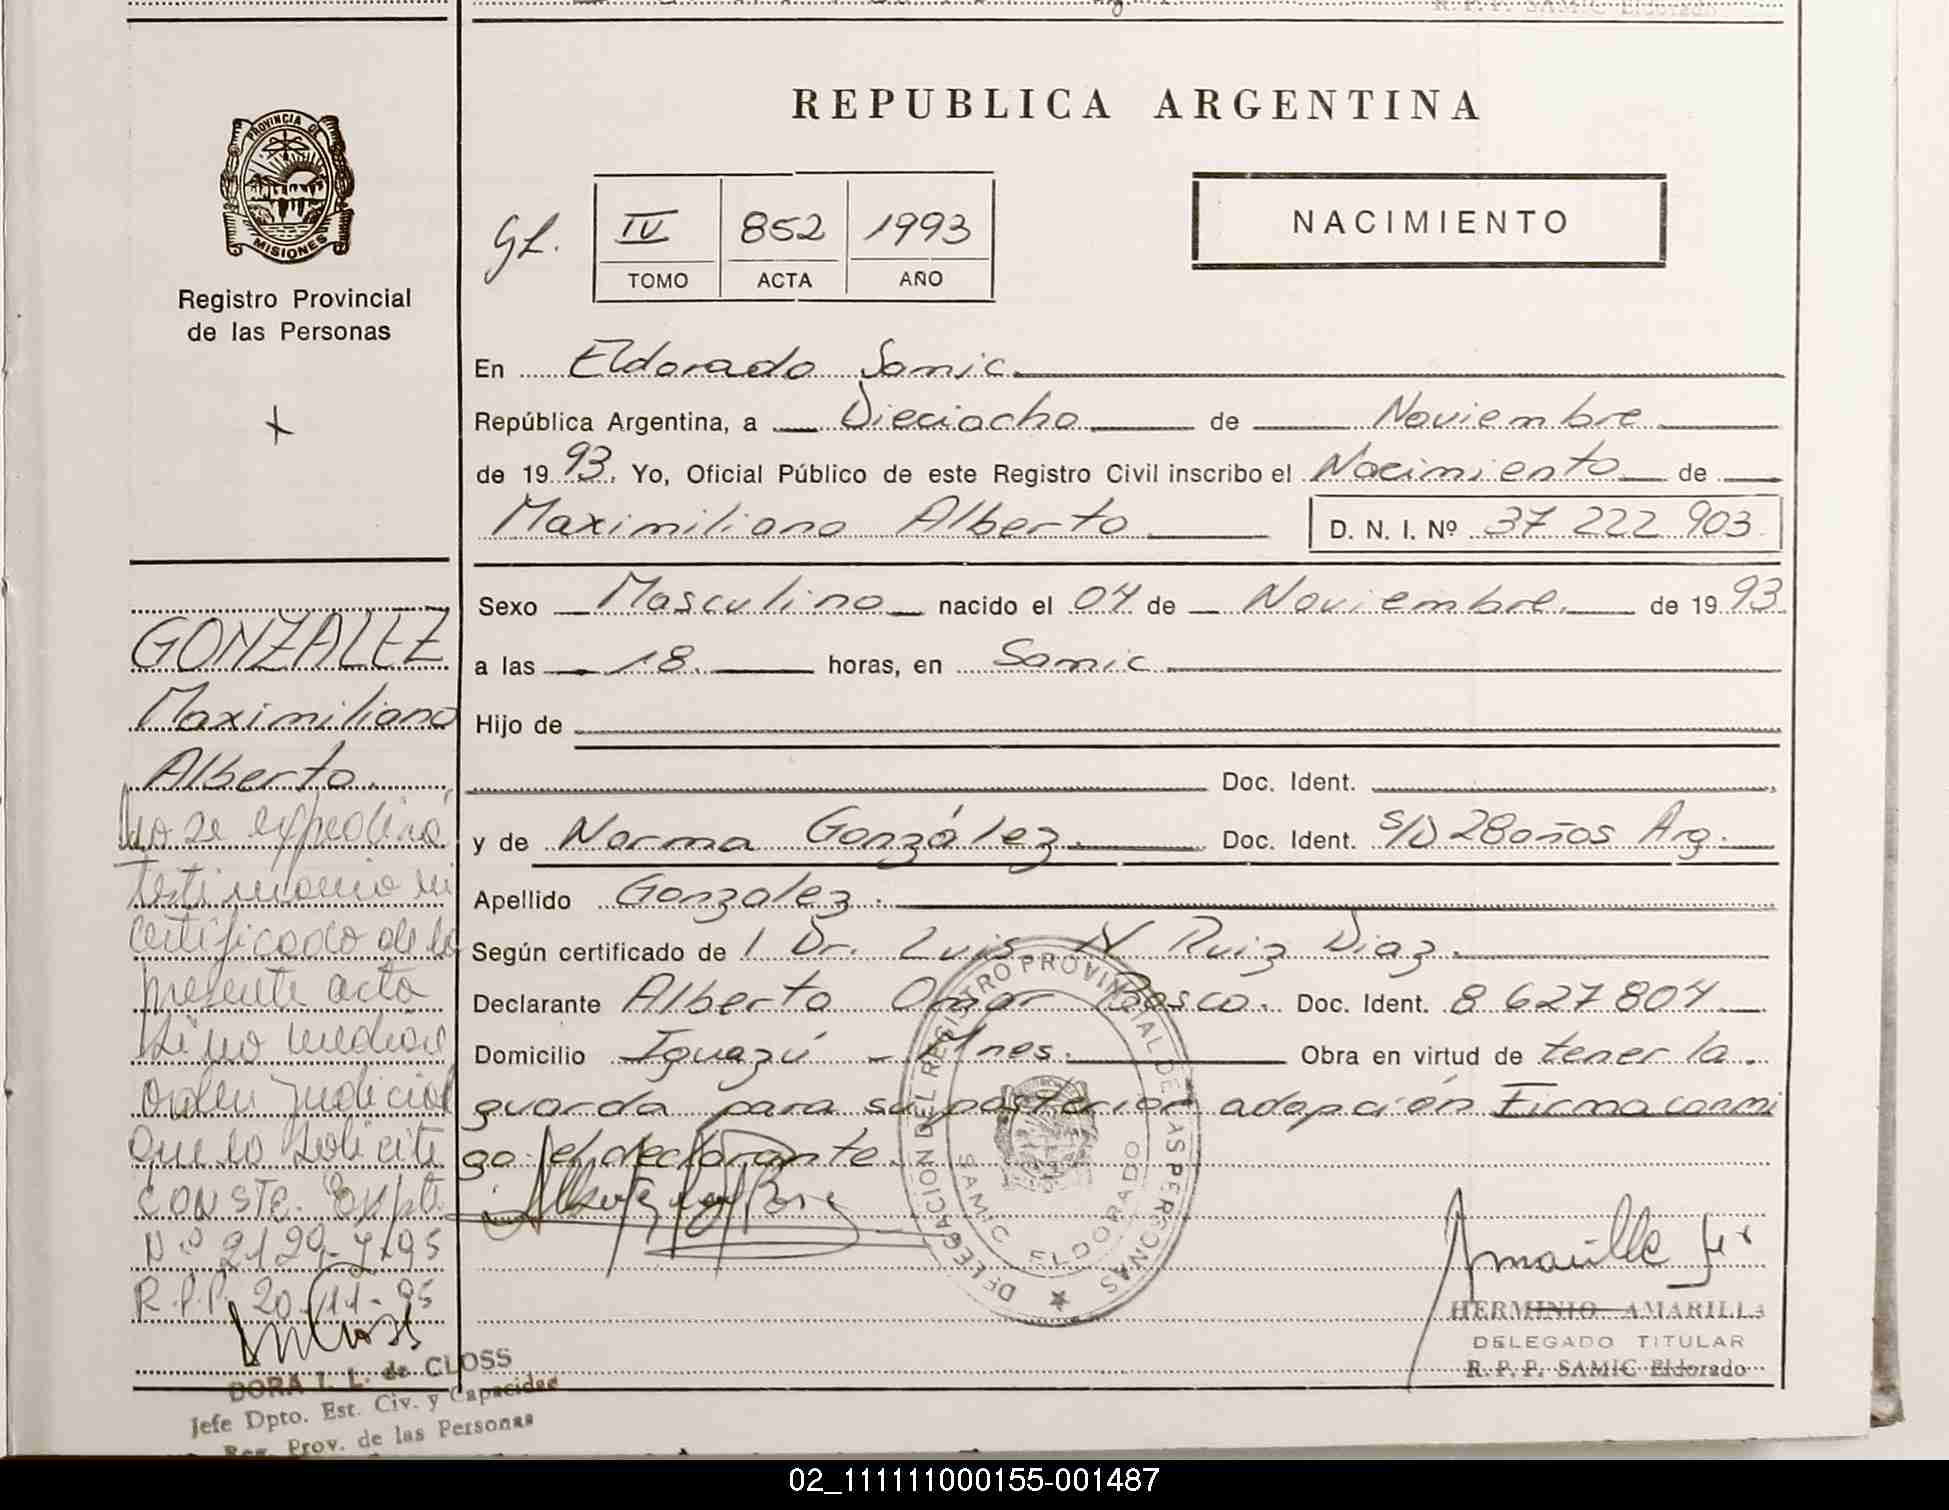 PROVINCIA DE
MISIONES
Registro Provincial
de las Personas
REPUBLICA ARGENTINA
NACIMIENTO
IV 852 1993
TOMO ACTA AÑO
En Eldorado Samic
República Argentina, a Dieciocho de Noviembre
de 1993. Yo, Oficial Público de este Registro Civil inscribo el Nacimiento de
Maximiliano Alberto D. N. I. Nº 37 222 903
Sexo Masculino nacido el 04 de Noviembre. de 1993
a las 18. horas, en Samic
Hijo de
Doc. Ident.
y de Norma González. Doc. Ident. S/D 28 años Arg.
Apellido Gonzalez.
Según certificado de 1 Dr. Luis N Ruiz Diaz.
Declarante Alberto Omar Bosco. Doc. Ident. 8 627 804
Domicilio Iguazú - Mnes. Obra en virtud de tener la
guarda para su posterior adopción Firma conmi
go el declarante.
GONZALEZ
Maximiliano
Alberto.
No se expedirá
testimonio ni
certificado de la
presente acta
si no media
orden judicial
que lo solicite
CONSTE. Expte.
Nº 2129-7/95
R.P.P. 20-11-95
DORA I. L. de CLOSS
Jefe Dpto. Est. Civ. y Capacidad
Reg. Prov. de las Personas
DELEGACION DEL REGISTRO PROVINCIAL DE LAS PERSONAS
SAMIC ELDORADO
HERMINIO AMARILLA
DELEGADO TITULAR
R. P. P. SAMIC Eldorado
02_111111000155-001487